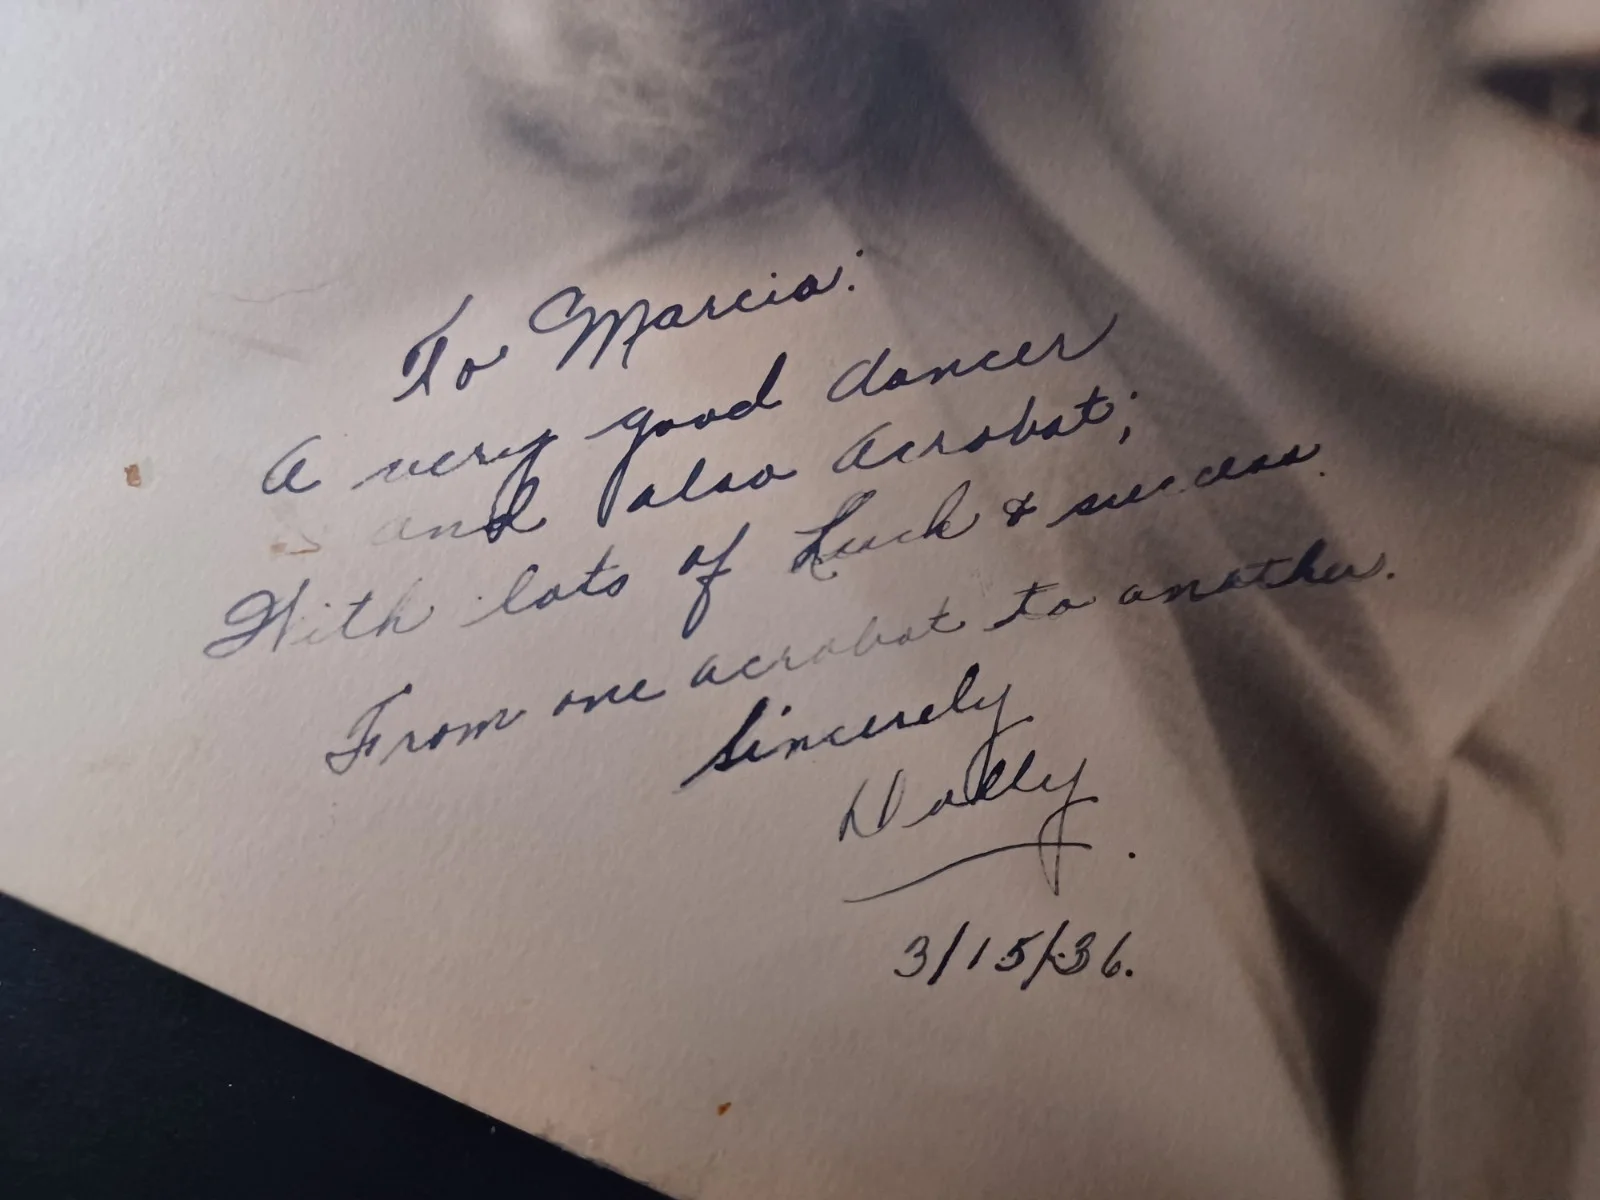 To Marcia:
A very good dancer
and also acrobat;
With lots of Luck & success.
From one acrobat to another.
Sincerely
Dolly
3/15/36.